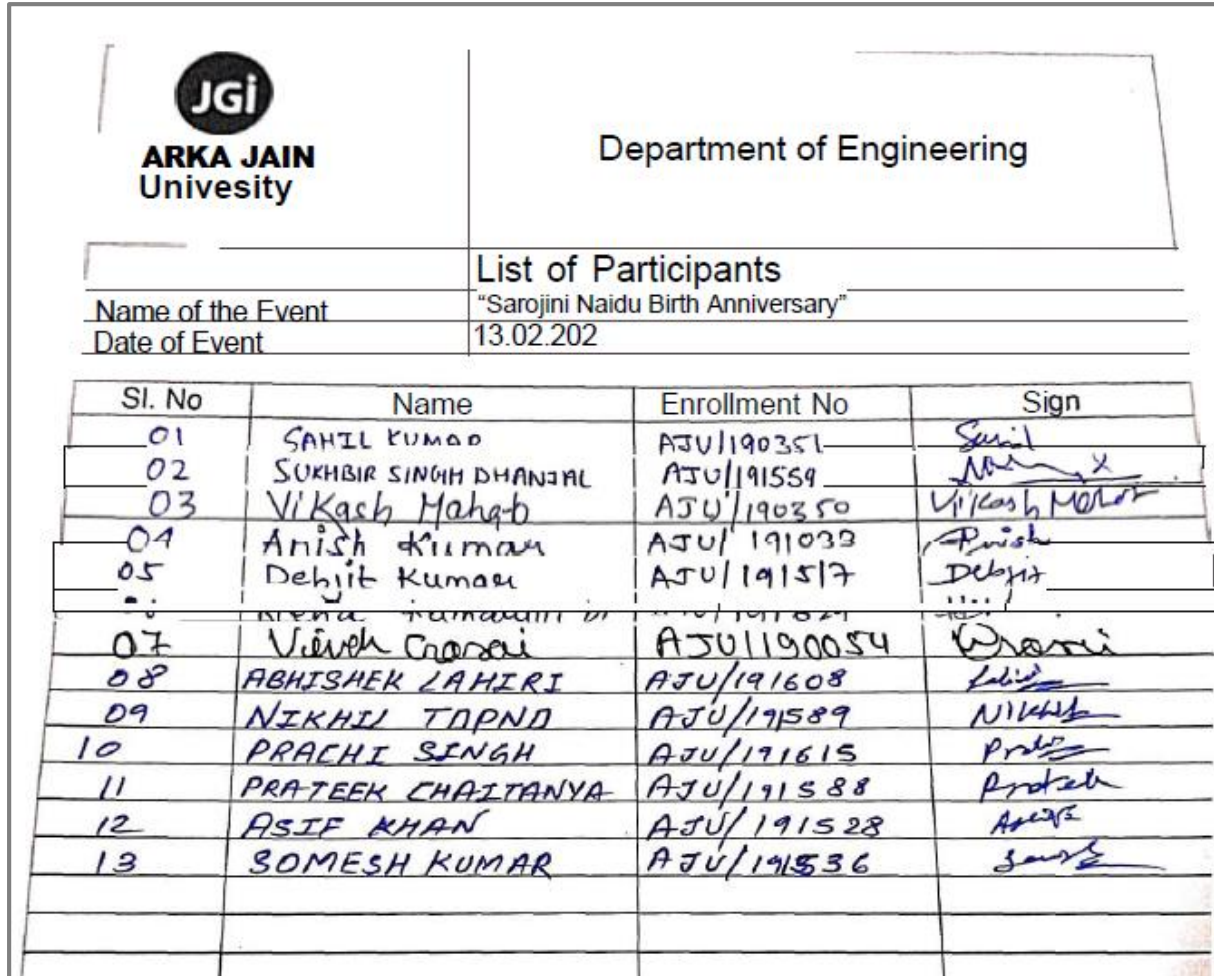 JGi
ARKA JAIN
Univesity
Department of Engineering
List of Participants
Name of the Event "Sarojini Naidu Birth Anniversary"
Date of Event 13.02.202
Sl. No Name Enrollment No Sign
01 SAHIL KUMAR AJU/190351
02 SUKHBIR SINGH DHANJAL AJU/191559
03 Vikash Mahato AJU/190350 Vikash
04 Anish Kumar AJU/191033 Anish
05 Debjit Kumar AJU/191517 Debjit
07 AJU/190054
08 ABHISHEK LAHIRI AJU/191608
09 NIKHIL TOPNO AJU/191589 Nikhil
10 PRACHI SINGH AJU/191615
11 PRATEEK CHAITANYA AJU/191588 Prateek
12 ASIF KHAN AJU/191528
13 SOMESH KUMAR AJU/191536